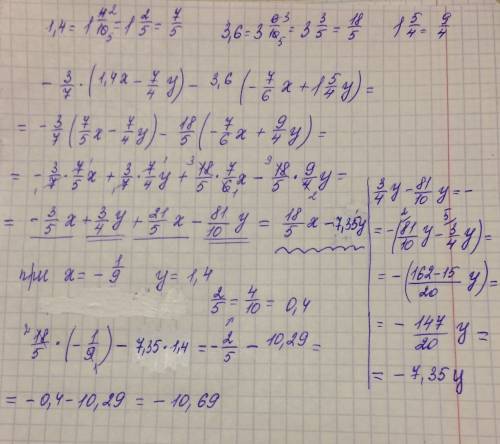 1,4 = 1 4/10 = 1 2/5 = 7/5 3,6 = 3 6/10 = 3 3/5 = 18/5 1 5/4 = 9/4
- 3/7 · (1,4x - 7/4 y) - 3,6 (- 7/6 x + 1 5/4 y) =
= - 3/7 (7/5 x - 7/4 y) - 18/5 (- 7/6 x + 9/4 y) =
= - 3/7 · 7/5 x + 3/7 · 7/4 y + 18/5 · 7/6 x - 18/5 · 9/4 y =
= - 3/5 x + 3/4 y + 21/5 x - 81/10 y = 18/5 x - 7,35y
при x = - 1/9 y = 1,4
2/5 = 4/10 = 0,4
18/5 · (- 1/9) - 7,35 · 1,4 = - 2/5 - 10,29 =
= - 0,4 - 10,29 = - 10,69
3/4 y - 81/10 y = -
= - (81/10 y - 3/4 y) =
= - (162-15/20 y) =
= - 147/20 y =
= - 7,35 y